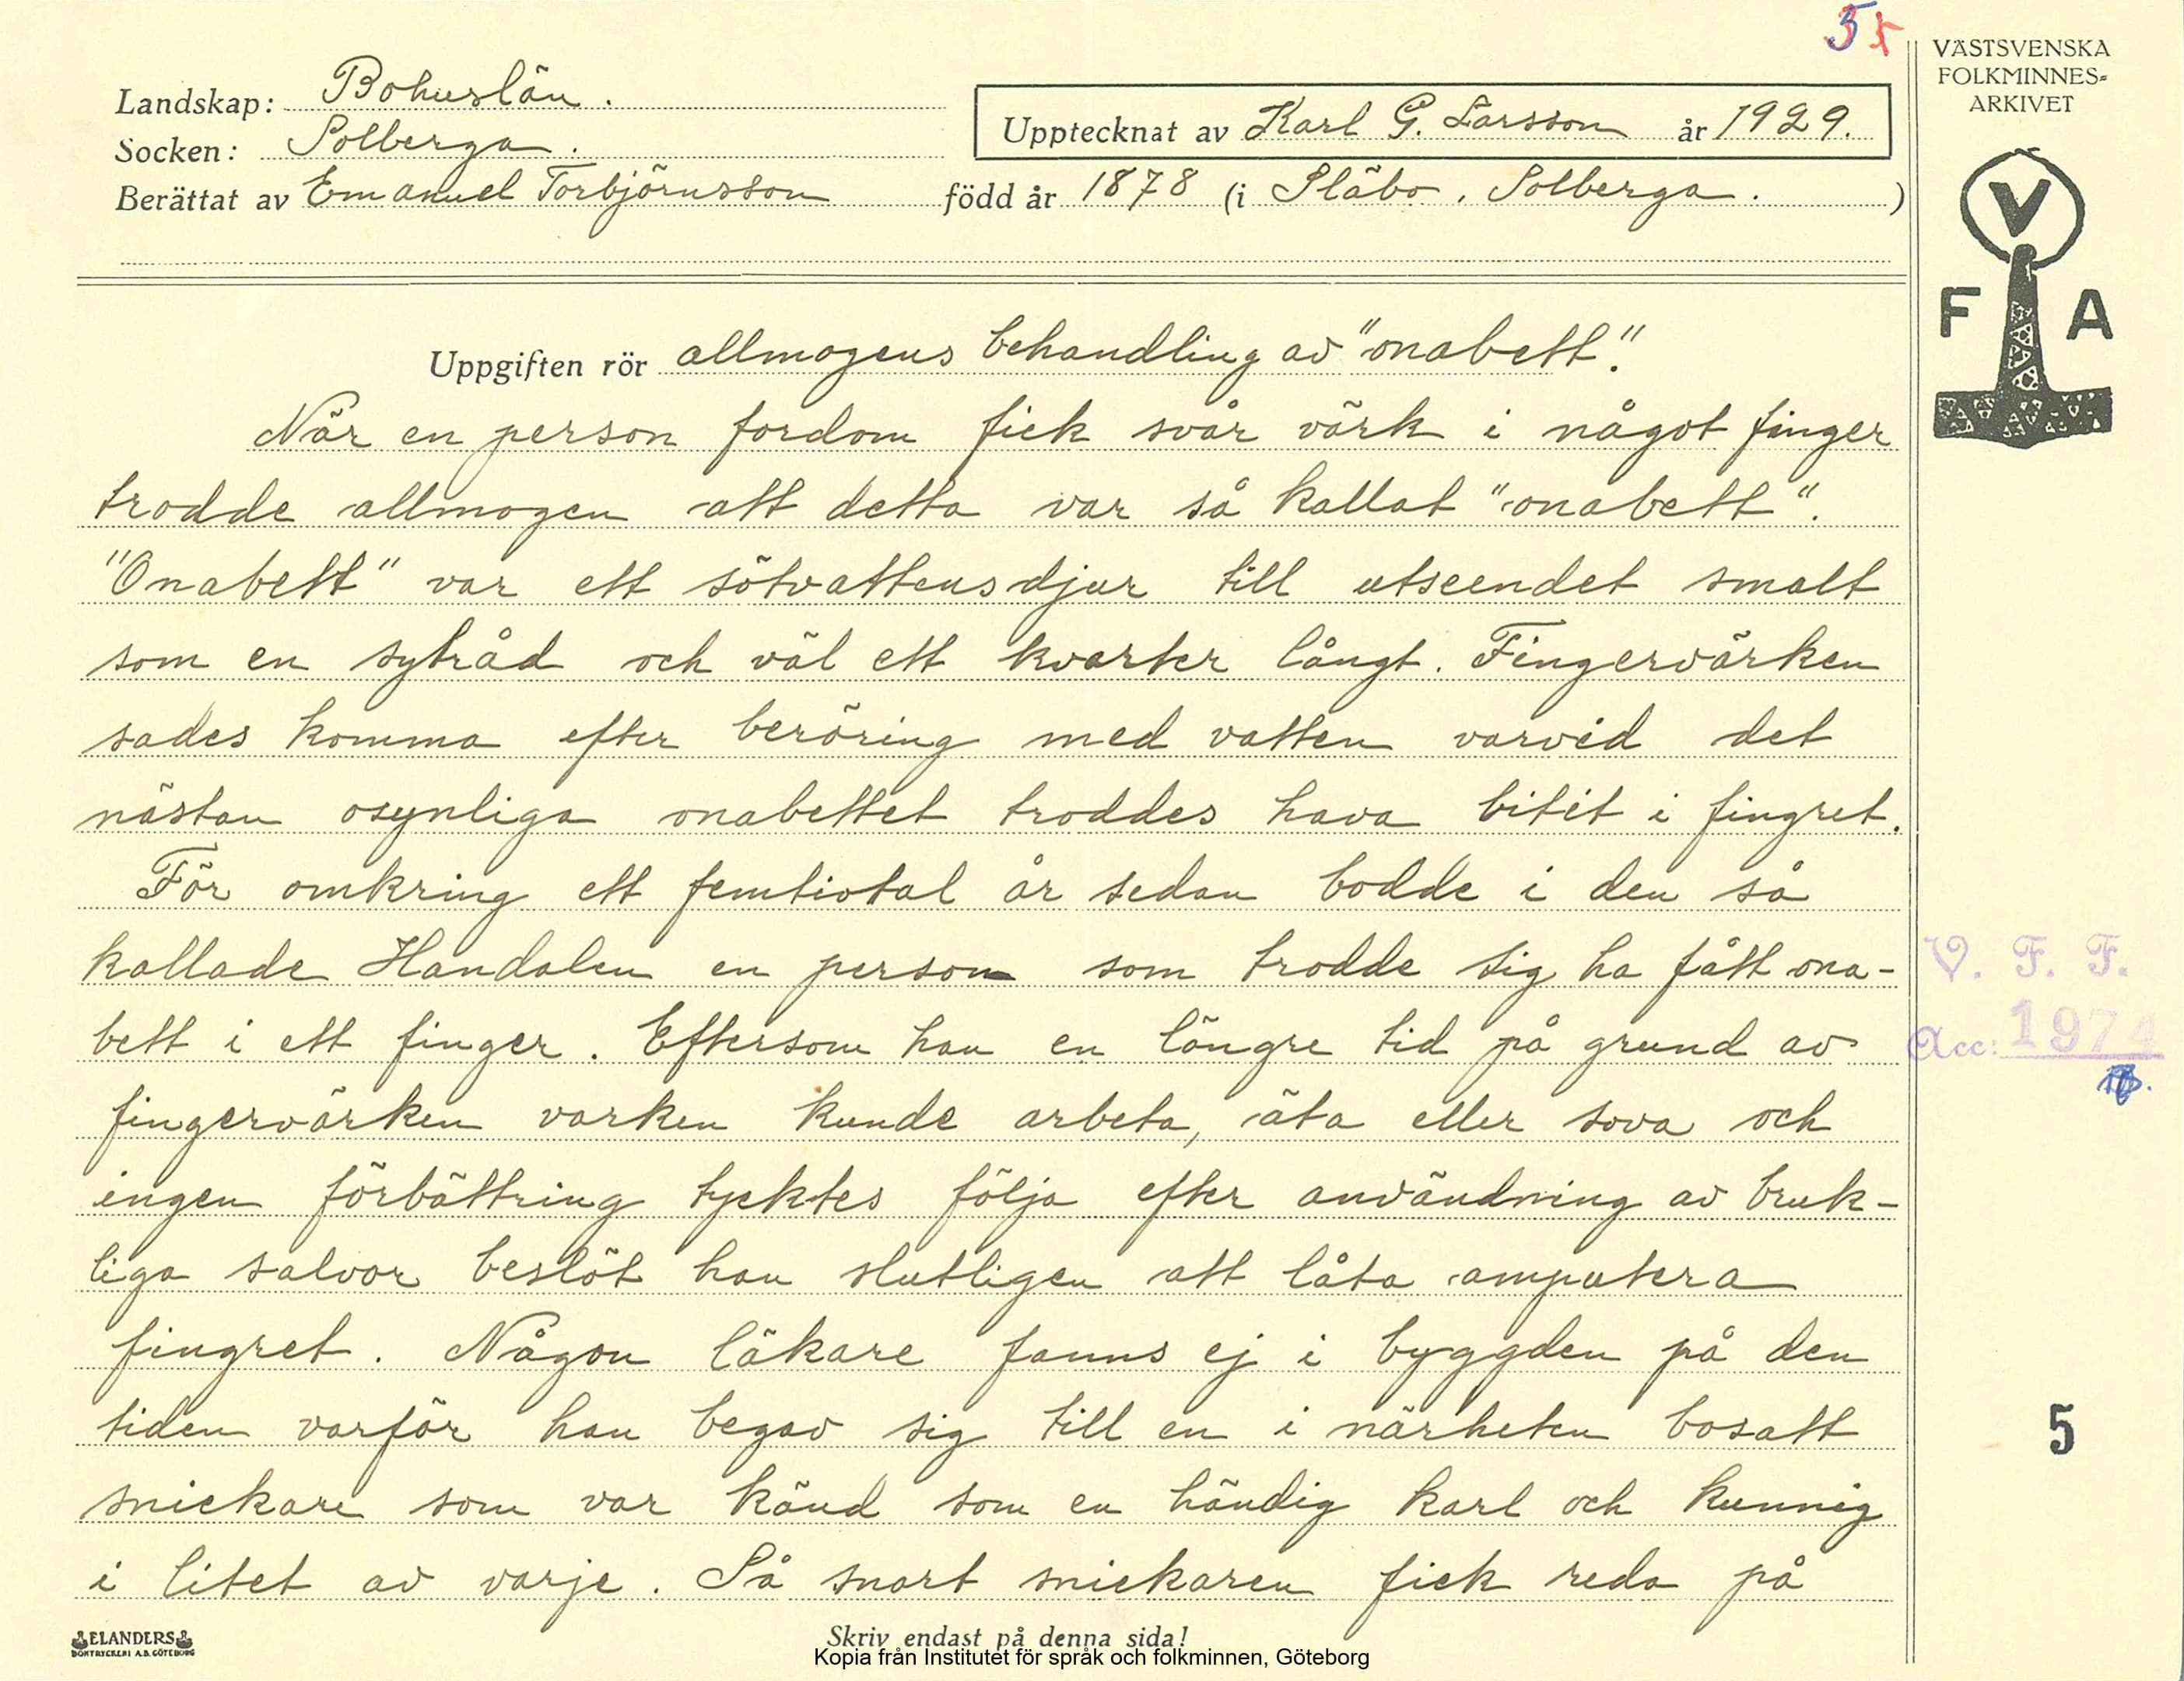 55
VÄSTSVENSKA
FOLKMINNES-
ARKIVET
Landskap: Bohuslän.
Socken: Solberga.
Upptecknat av Karl G. Larsson år 1929.
Berättat av Emanuel Torbjörnsson född år 1878 (i Släbo, Solberga. )
V
F A
Uppgiften rör allmogens behandling av "onabett".
När en person fordom fick svår värk i något finger
trodde allmogen att detta var så kallat "onabett".
"Onabett" var ett sötvattensdjur till utseendet smalt
som en sytråd och väl ett kvarter långt. Fingervärken
sades komma efter beröring med vatten varvid det
nästan osynliga onabettet troddes hava bitit i fingret.
För omkring ett femtiotal år sedan bodde i den så
kallade Handalen en person som trodde sig ha fått ona-
bett i ett finger. Eftersom han en längre tid på grund av
fingervärken varken kunde arbeta, äta eller sova och
ingen förbättring tycktes följa efter användning av bruk-
liga salvor beslöt han slutligen att låta amputera
fingret. Någon läkare fanns ej i byggden på den
tiden varför han begav sig till en i närheten bosatt
snickare som var känd som en händig karl och kunnig
i litet av varje. Så snart snickaren fick reda på
V. F. F.
Acc: 1974
5
ELANDERS
BOKTRYCKERI A.B. GÖTEBORG
Skriv endast på denna sida!
Kopia från Institutet för språk och folkminnen, Göteborg